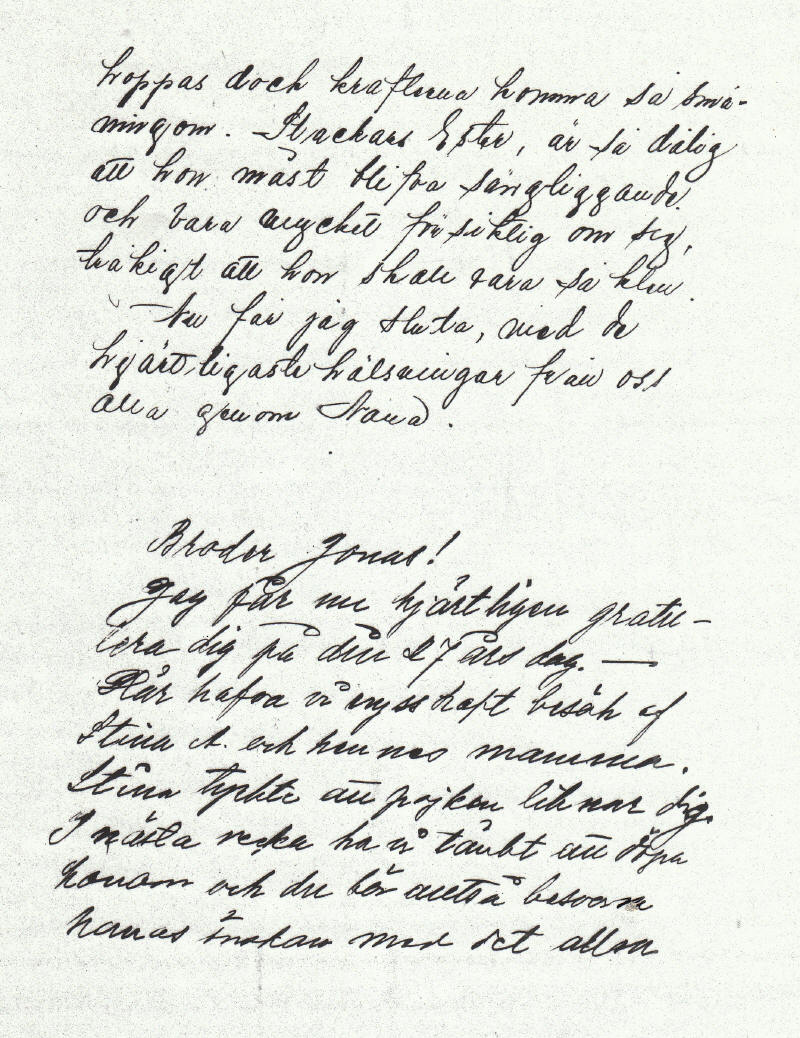 hoppas doch krafterna komma så små-
ningom. Stackars Ester, är så dålig
att hon måst blifva sängliggande
och vara mycket försiktig om sig,
tråkigt att hon skall vara så klen.
Nu får jag sluta, med de
hjärtligaste hälsningar från oss
alla genom Nana.
Broder Jonas!
Jag får nu hjärtligen gratu-
lera dig på din 27 års dag. —
Här hafva vi nyss haft besök af
Stina A. och hennes mamma.
Stina tyckte att pojken liknar dig.
I nästa vecka ha vi tänkt att döpa
honom och du bör alltså besvara
hans önskan med det allra